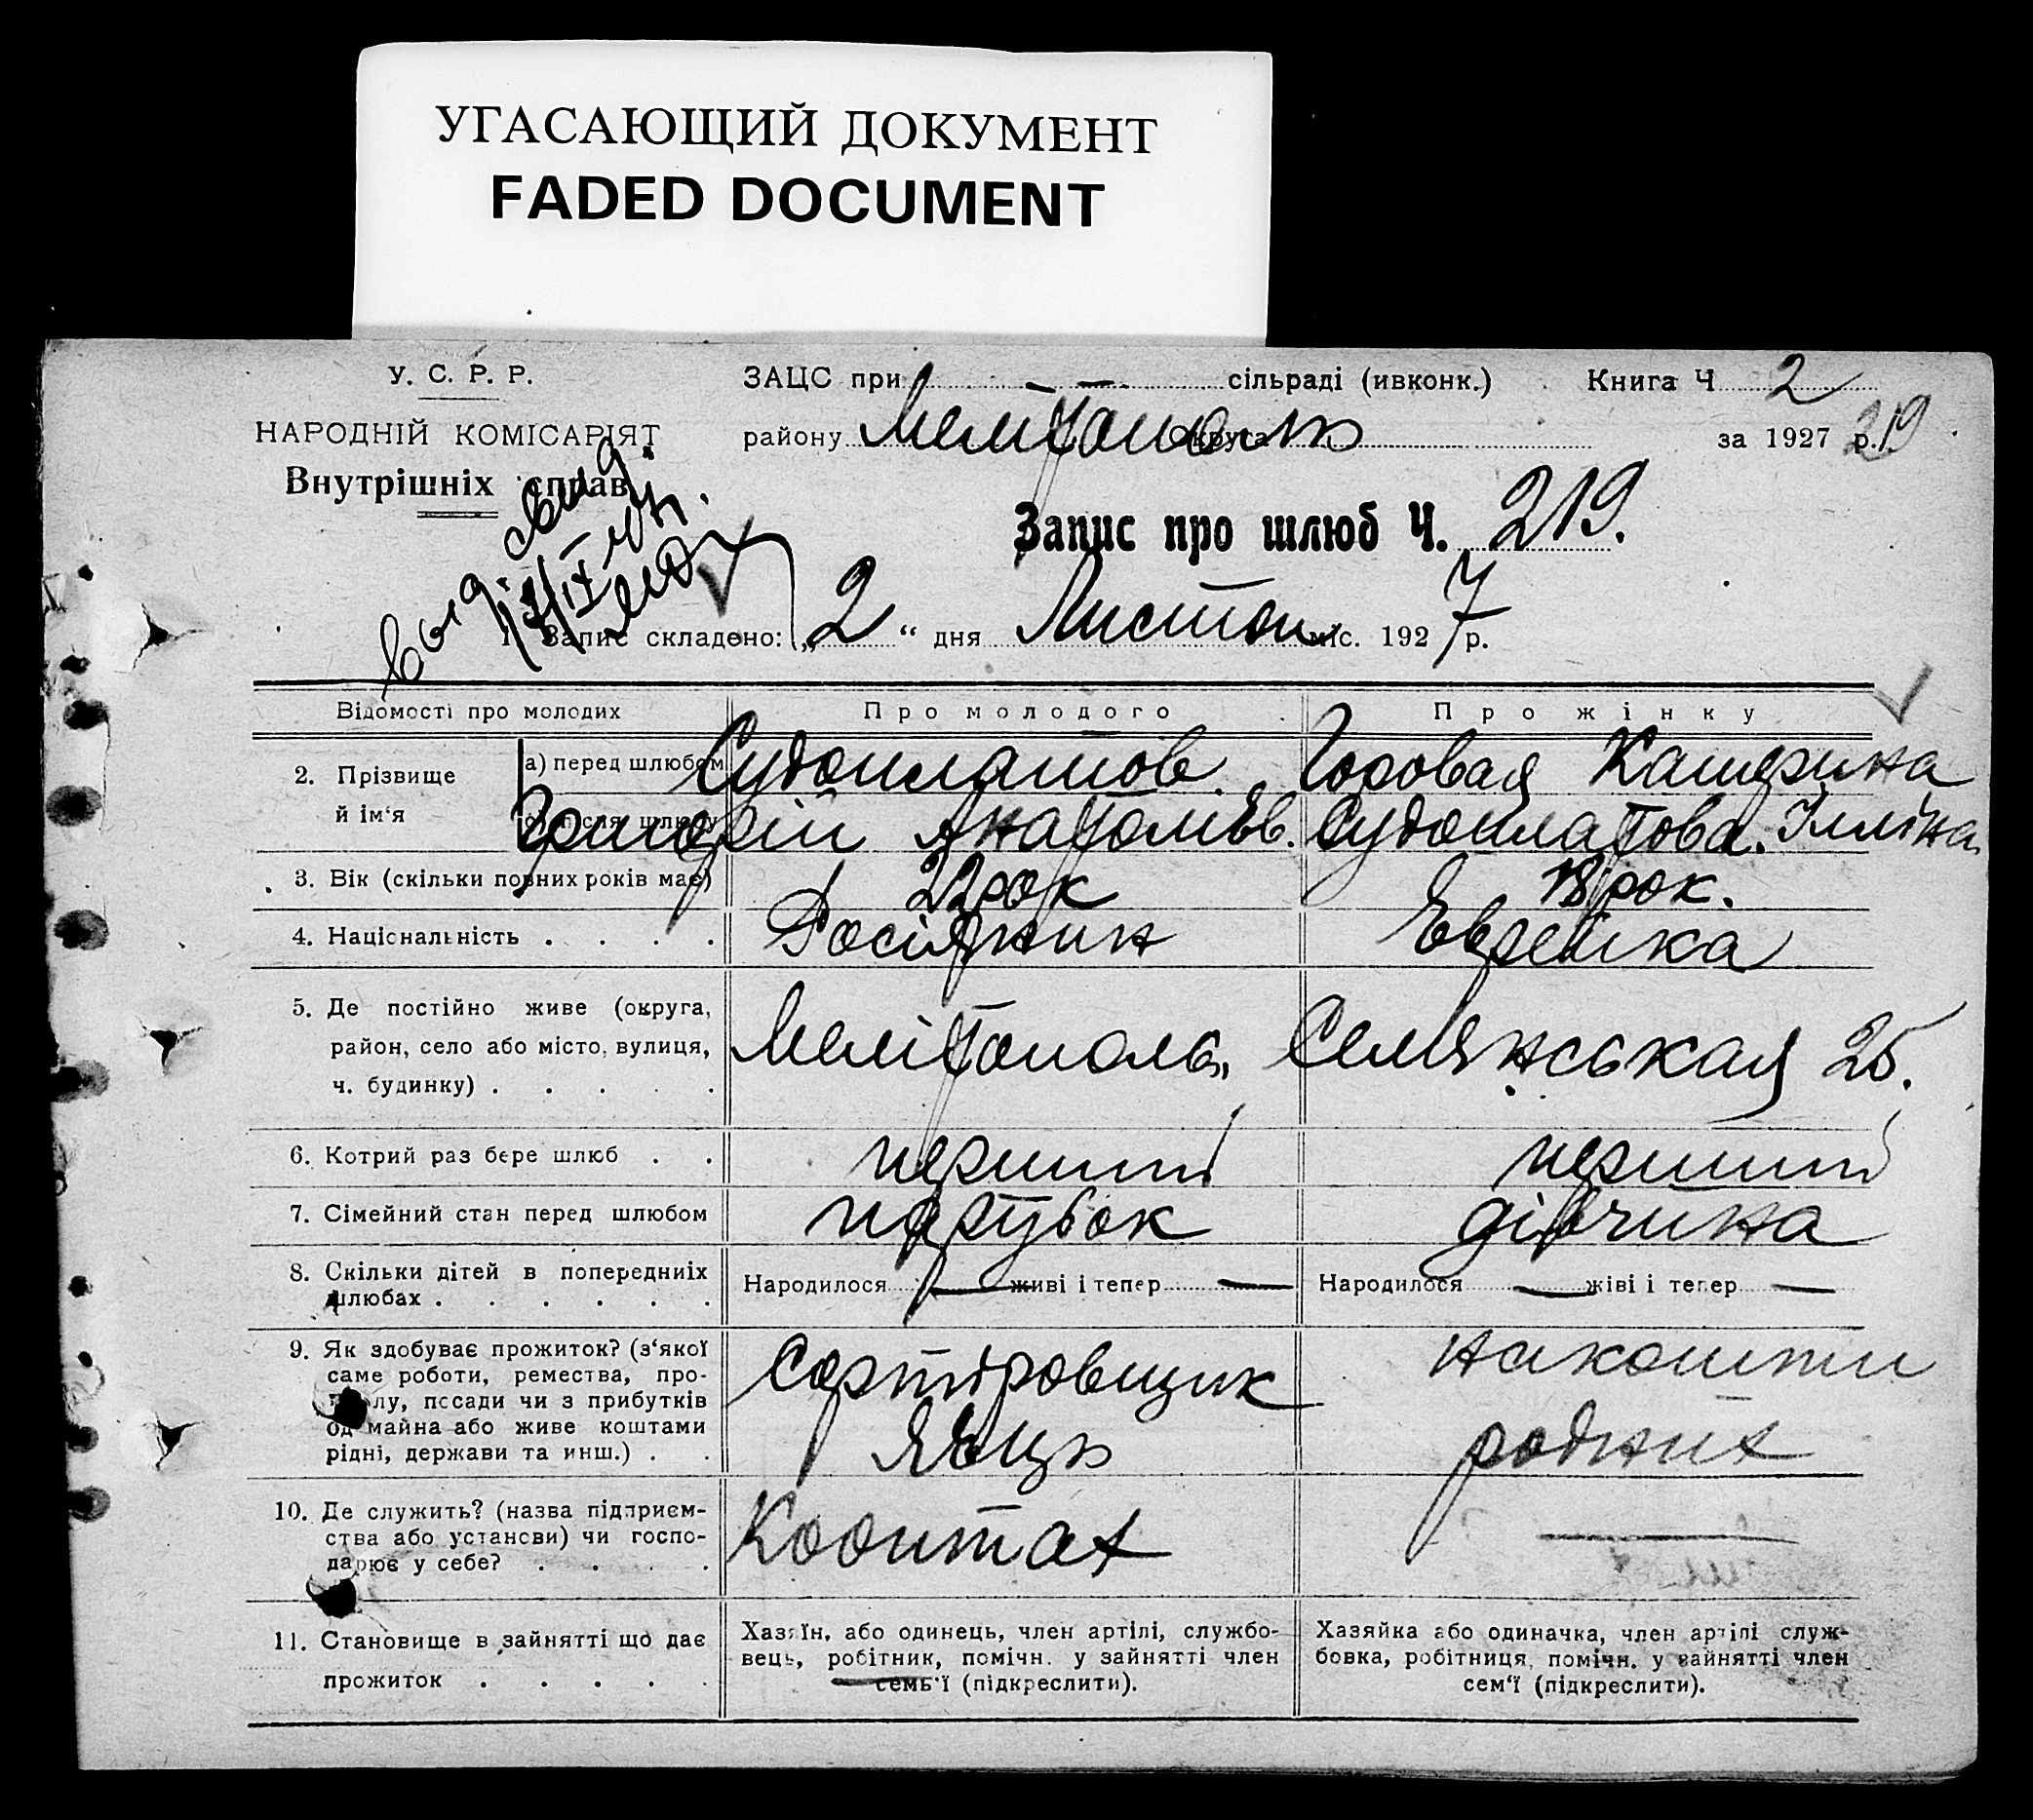 УГАСАЮЩИЙ ДОКУМЕНТ
FADED DOCUMENT
У. С. Р. Р.
НАРОДНІЙ КОМІСАРІЯТ
Внутрішніх справ
ЗАЦС при — — сільраді (ивконк.) Книга Ч 2
району Мелітополь округа за 1927 р. 219
Запис про шлюб Ч. 219.
Выд. свид.
1. Запис складено: „2“ дня Листоп міс. 1927 р.
Відомості про молодих Про молодого Про жінку
2. Прізвище й ім‘я
а) перед шлюбом Судоплатов Горовая Катерина
Григорій Анатольев. Судоплатова. Іллінa
3. Вік (скільки повних років має) 22 рок 18 рок.
4. Національність . . . . Росіянин Еврейка
5. Де постійно живе (округа,
район, село або місто, вулиця,
ч. будинку) . . . . .
Мелітополь, Семянськая 25.
6. Котрий раз бере шлюб . . перший перший
7. Сімейний стан перед шлюбом парубок дівчина
8. Скільки дітей в попередниіх
шлюбах . . . . . .
Народилося — живі і тепер — Народилося — жіві і тепер —
9. Як здобуває прожиток? (з‘якої
саме роботи, ремества, про-
лу, посади чи з прибутків
од майна або живе коштами
рідні, держави та инш.) . .
Сортіровщик
Яъцъ
на кошти
родних
10. Де служить? (назва підприєм-
ства або установи) чи госпо-
дарює у себе? . . . .
Кооптах —
11. Становище в зайнятті що дає
прожиток . . . . .
Хазяїн, або одинець, член артілі, службо-
вець, робітник, помічн. у зайнятті член
семь‘ї (підкреслити).
Хазяйка або одиначка, член артілі служ-
бовка, робітниця, помічн. у зайнятті член
сем‘ї (підкреслити).